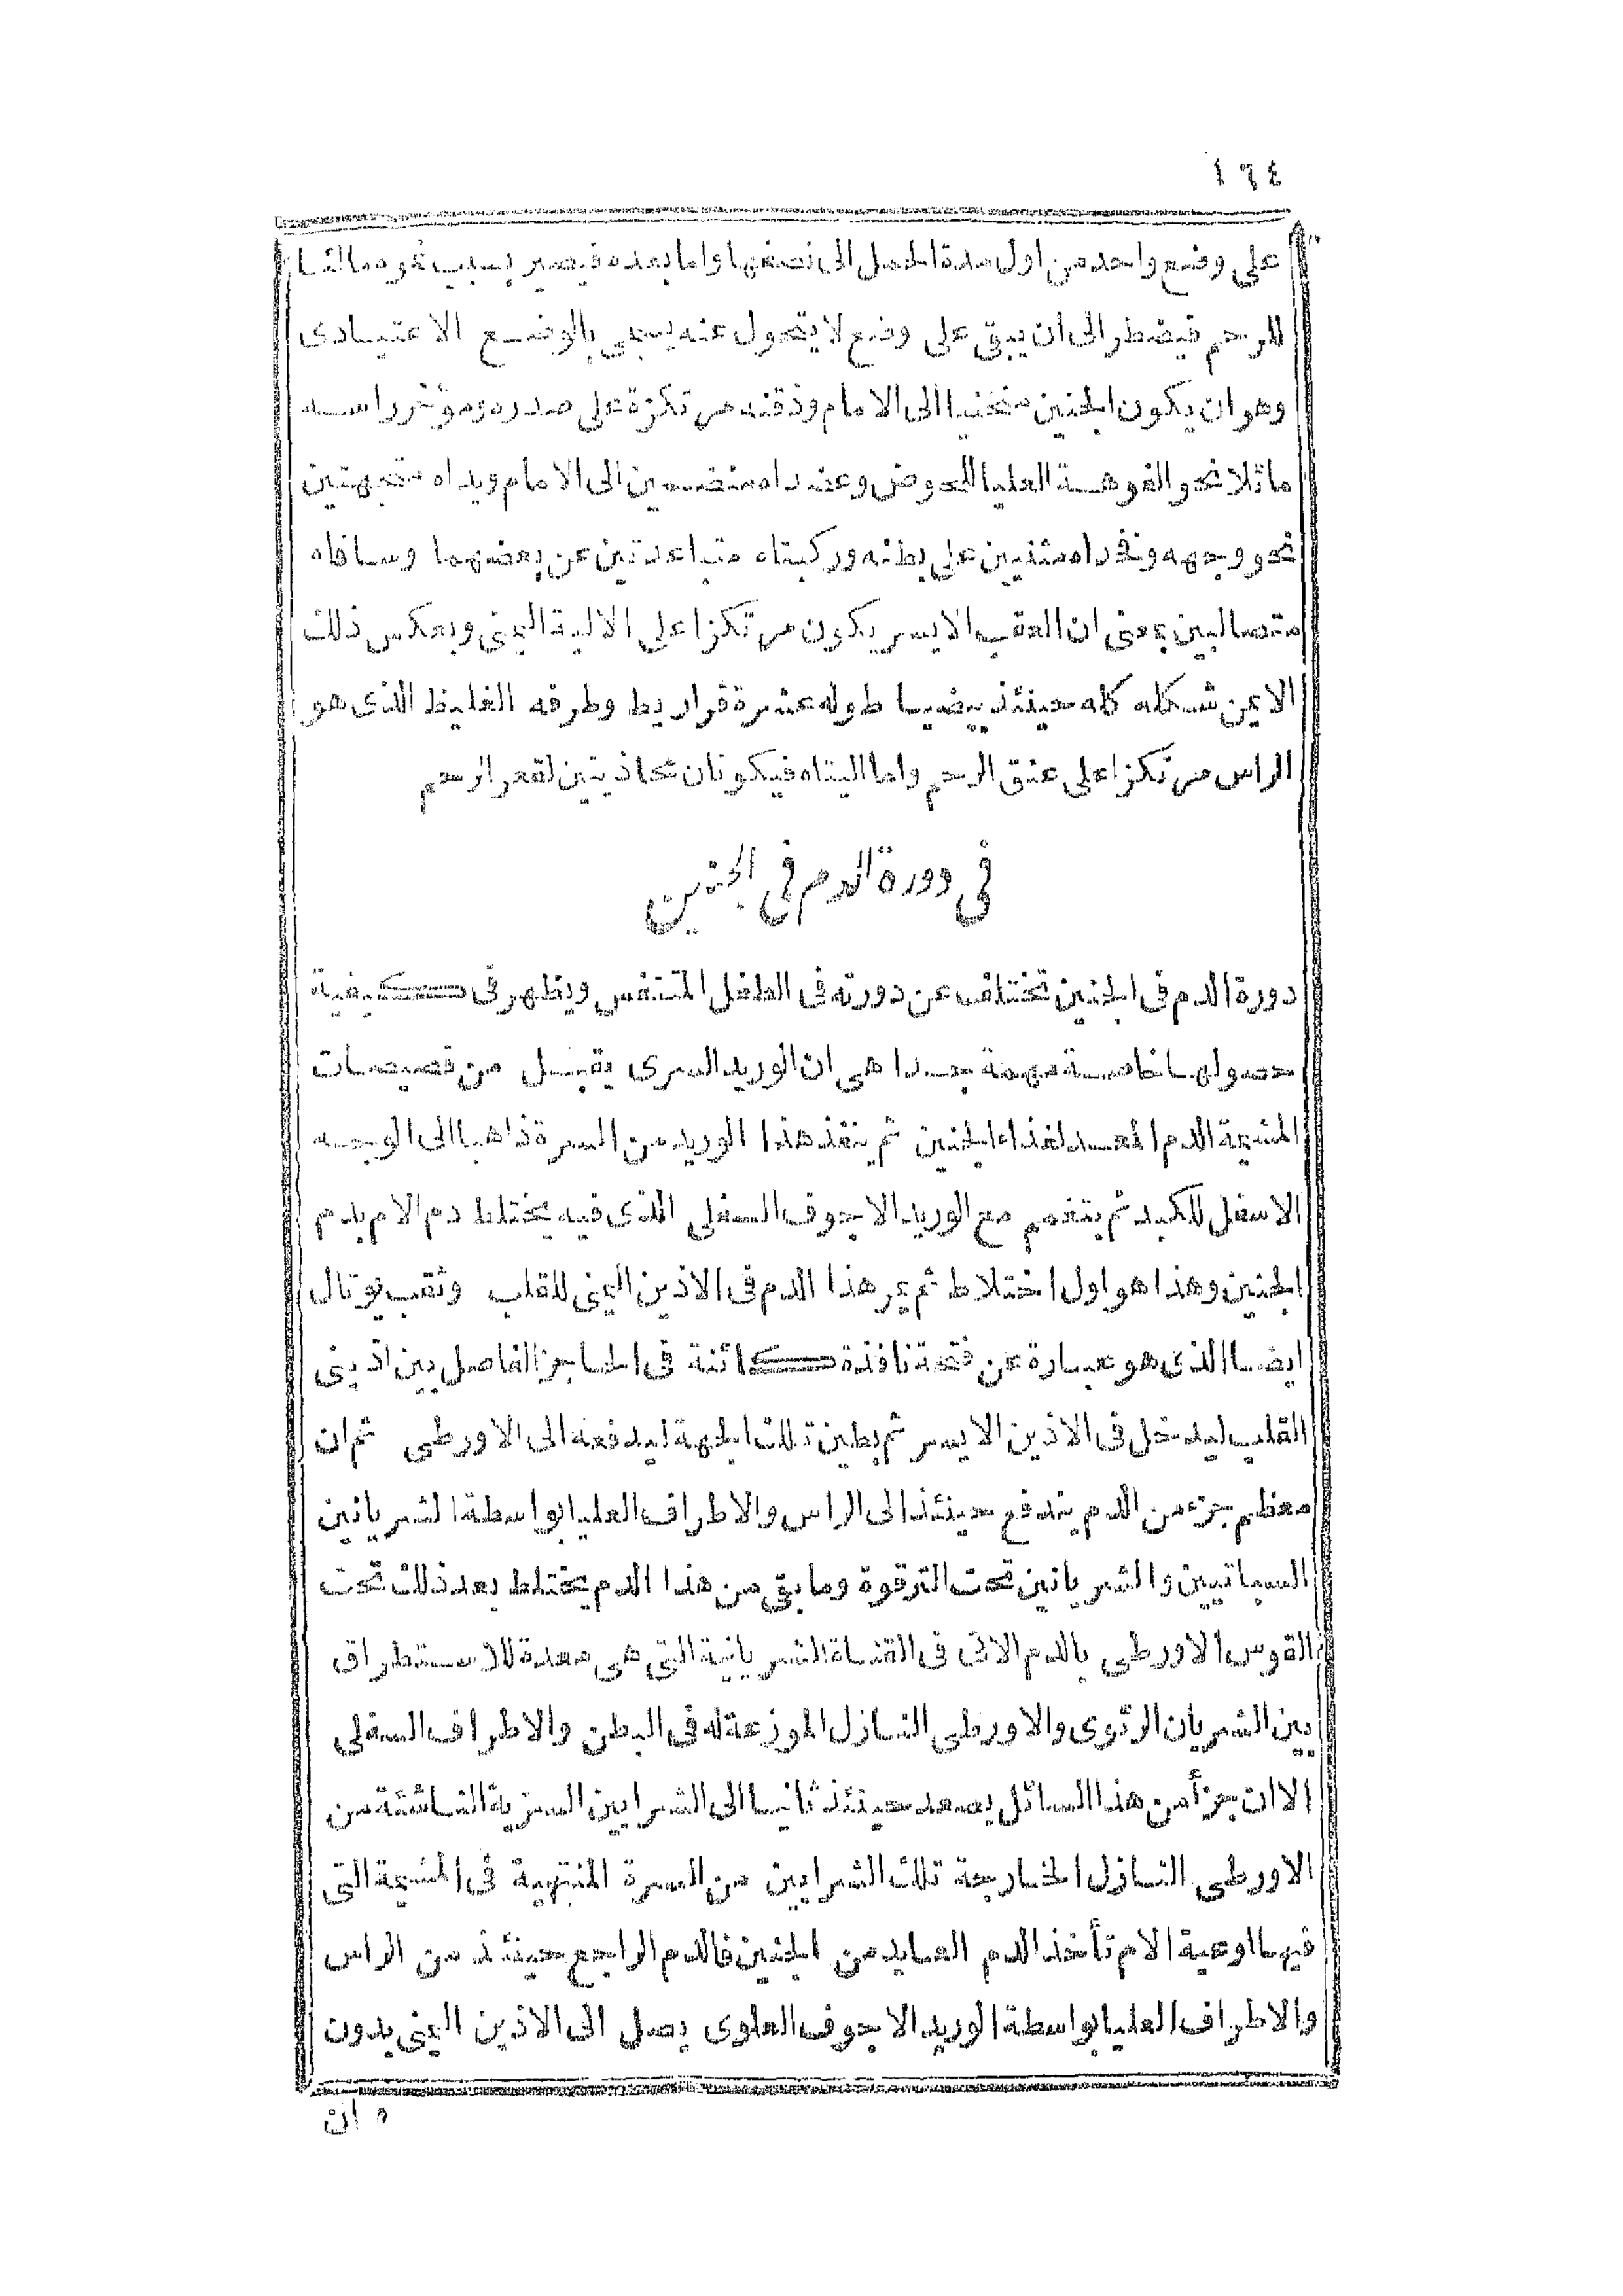 ١٦٤
على وضع واحد من اول مدة الحمل الى نصفها واما بعده فيصير بسبب نموه مالئا
للرحم فيضطر الى ان يبقى على وضع لا يتحول عنه يسمى بالوضع الاعتيادى
وهو ان يكون الجنين منحنيا الى الامام وذقنه مرتكزة على صدره ومؤخر راسه
مائلا نحو الفوهة العليا للحوض وعضداه منضمين الى الامام ويداه متجهتين
نحو وجهه وفخداه مثنيين على بطنه وركبتاه متباعدتين عن بعضهما وساقاه
متصالبين بمعنى ان العقب الايسر يكون مرتكزا على الالية اليمنى وبعكس ذلك
الايمن شكله كله حينئذ بيضيا طوله عشرة قراريط وطرفه الغليظ الذى هو
الراس مرتكزا على عنق الرحم واما اليتاه فيكونان محاذيتين لقعر الرحم
فى دورة الدم فى الجنين
دورة الدم فى الجنين تختلف عن دورته فى الطفل المتنفس ويظهر فى كيفية
حصولها خاصة مهمة جدا هى ان الوريد السرى يقبل من فصيصات
المشيمة الدم المعد لغذاء الجنين ثم ينفذ هذا الوريد من السرة ذاهبا الى الوجه
الاسفل للكبد ثم ينضم مع الوريد الاجوف السفلى الذى فيه يختلط دم الام بدم
الجنين وهذا هو اول اختلاط ثم يمر هذا الدم فى الاذين اليمنى للقلب وثقب بوتال
ايضا الذى هو عبارة عن فتحة نافذة كائنة فى الحاجز الفاصل بين اذينى
القلب ليدخل فى الاذين الايسر ثم بطين تلك الجهة ليدفعه الى الاورطى ثم ان
معظم جزء من الدم يندفع حينئذ الى الراس والاطراف العليا بواسطة الشريانين
السباتيين والشريانين تحت الترقوة وما بقى من هذا الدم يختلط بعد ذلك تحت
القوس الاورطى بالدم الاتى فى القناة الشريانية التى هى معدة للاستطراق
بين الشريان الرئوى والاورطى النازل الموزعة له فى البطن والاطراف السفلى
الا ان جزأ من هذا السائل يصعد حينئذ ثانيا الى الشرايين السرية الناشئة من
الاورطى النازل الخارجة تلك الشرايين من السرة المنتهية فى المشيمة التى
فيها اوعية الام تأخذ الدم العايد من الجنين فالدم الراجع حينئذ من الراس
والاطراف العليا بواسطة الوريد الاجوف العلوى يصل الى الاذين اليمنى بدون
ان